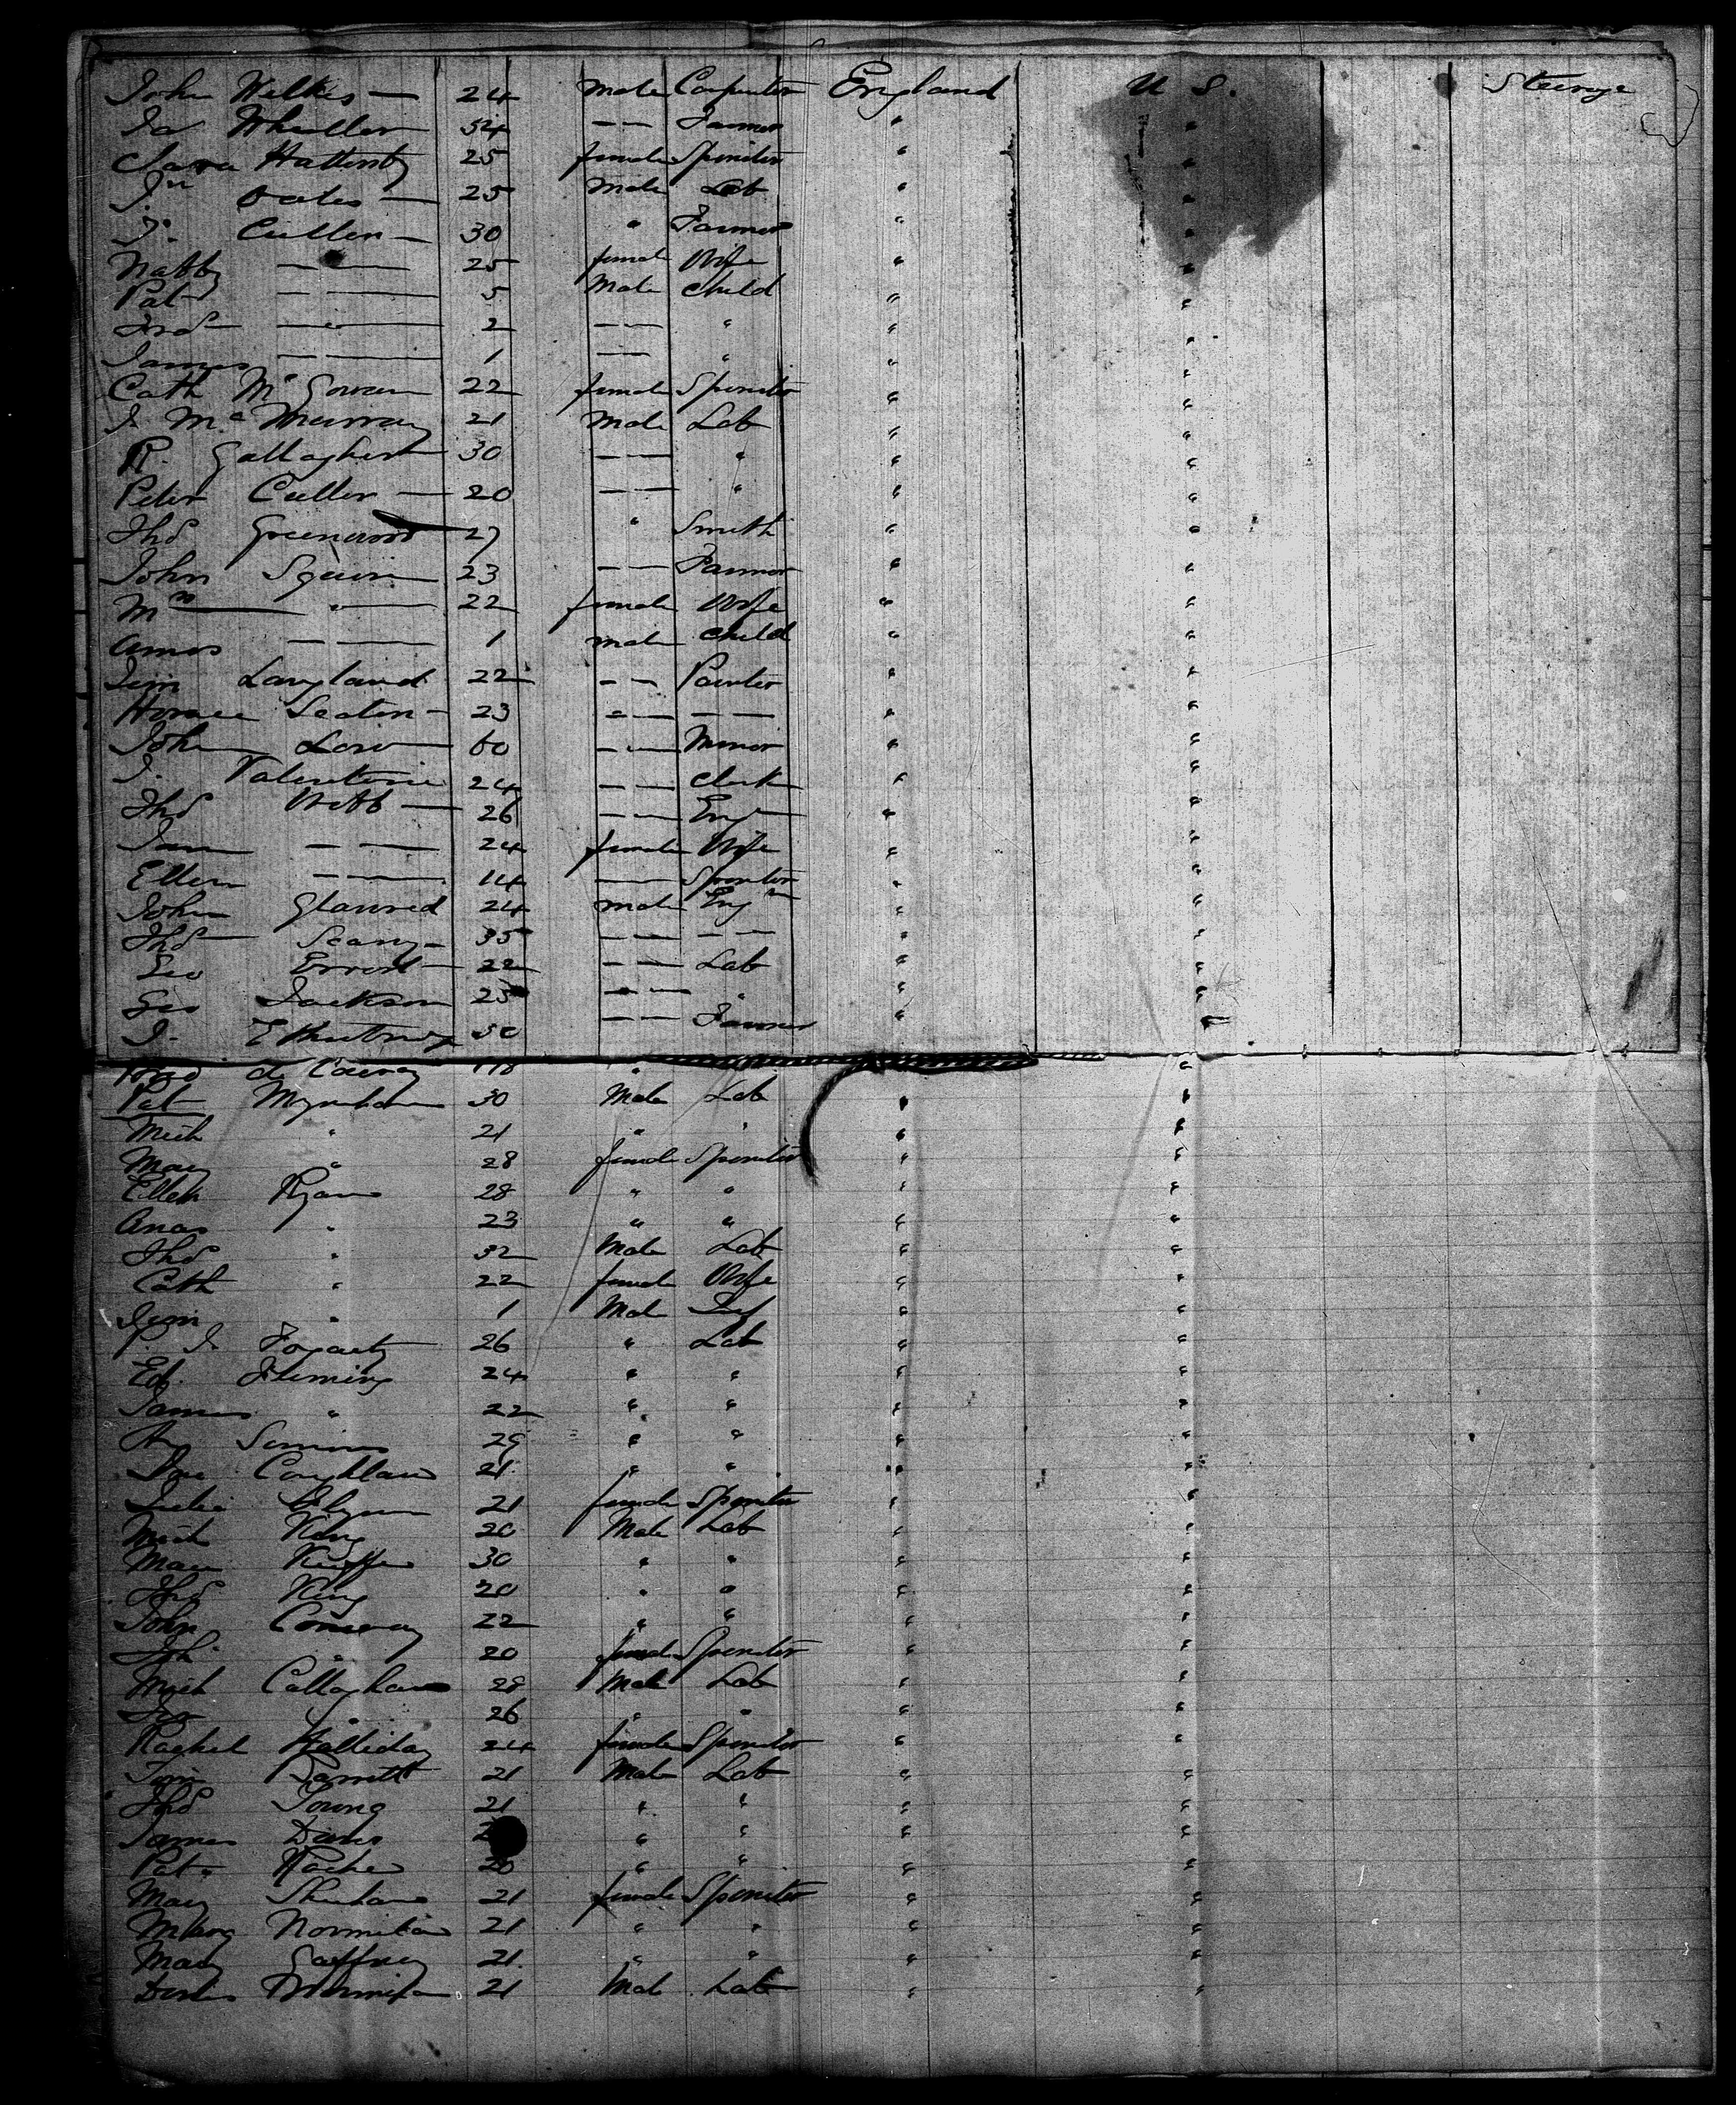 John Wilkes — 24 Male Carpenter England U S. Steerage
Jas Wheeller 34 — — Farmer "
Clara Hattersly 25 female Spinster "
Jn Oates — 25 Male Lab "
J. Cullen — 30 " Farmer "
Nabby — — 25 female Wife "
Pat — — 5 Male Child "
— — 2 — — " "
James — — 1 — — " "
Cath McGowan 22 female Spinster "
J. McMurray 21 Male Lab "
R. Gallagher 30 — — " "
Peter Cullen — 20 — — " "
Thos Greenwood 27 " Smith "
John Squire 23 — — Farmer "
Mrs " 22 female Wife "
Amos — — 1 male Child "
Langland 22 — — Painter "
Horace Seaton — 23 — — — — "
John Law 60 — — Minor "
J. Valentine 24 — — Clerk "
Thos Webb — 26 — — Engr "
Jane — — 24 female Wife "
Ellen — — 14 — — Spinster "
John 24 male Engr "
Thos 35 — — — — "
Geo Errod 22 — — Lab "
Geo Jackson 25 — — " "
J. 50 — — Farmer "
de Courcy "
Pat 30 Male Lab "
Mich " 21 " " "
Mary " 28 female Spinster "
Ellen Ryan 28 " " "
Anas " 23 " " "
Thos " 32 Male Lab "
Cath " 22 female Wife "
Jim " 1 Male Inf "
P. J. Fogarty 26 " Lab "
Ed. Fleming 24 " " "
James " 22 " " "
29 " " "
Coughlan 21 " " "
Julia Glynn 21 female Spinster "
Mich King 20 Male Lab "
Keeffe 30 " " "
Thos King 20 " " "
John Conway 22 " " "
" 20 female Spinster "
Mich Callaghan 28 Male Lab "
" 26 " " "
Rachel Halliday 24 female Spinster "
Jim Garrett 21 Male Lab "
Thos Young 21 " " "
James Davis " " "
Pat. Roche 20 " " "
Mary Sheehan 21 female Spinster "
Marg Normile 21 " " "
Mary Gaffney 21 " " "
21 Male Lab "